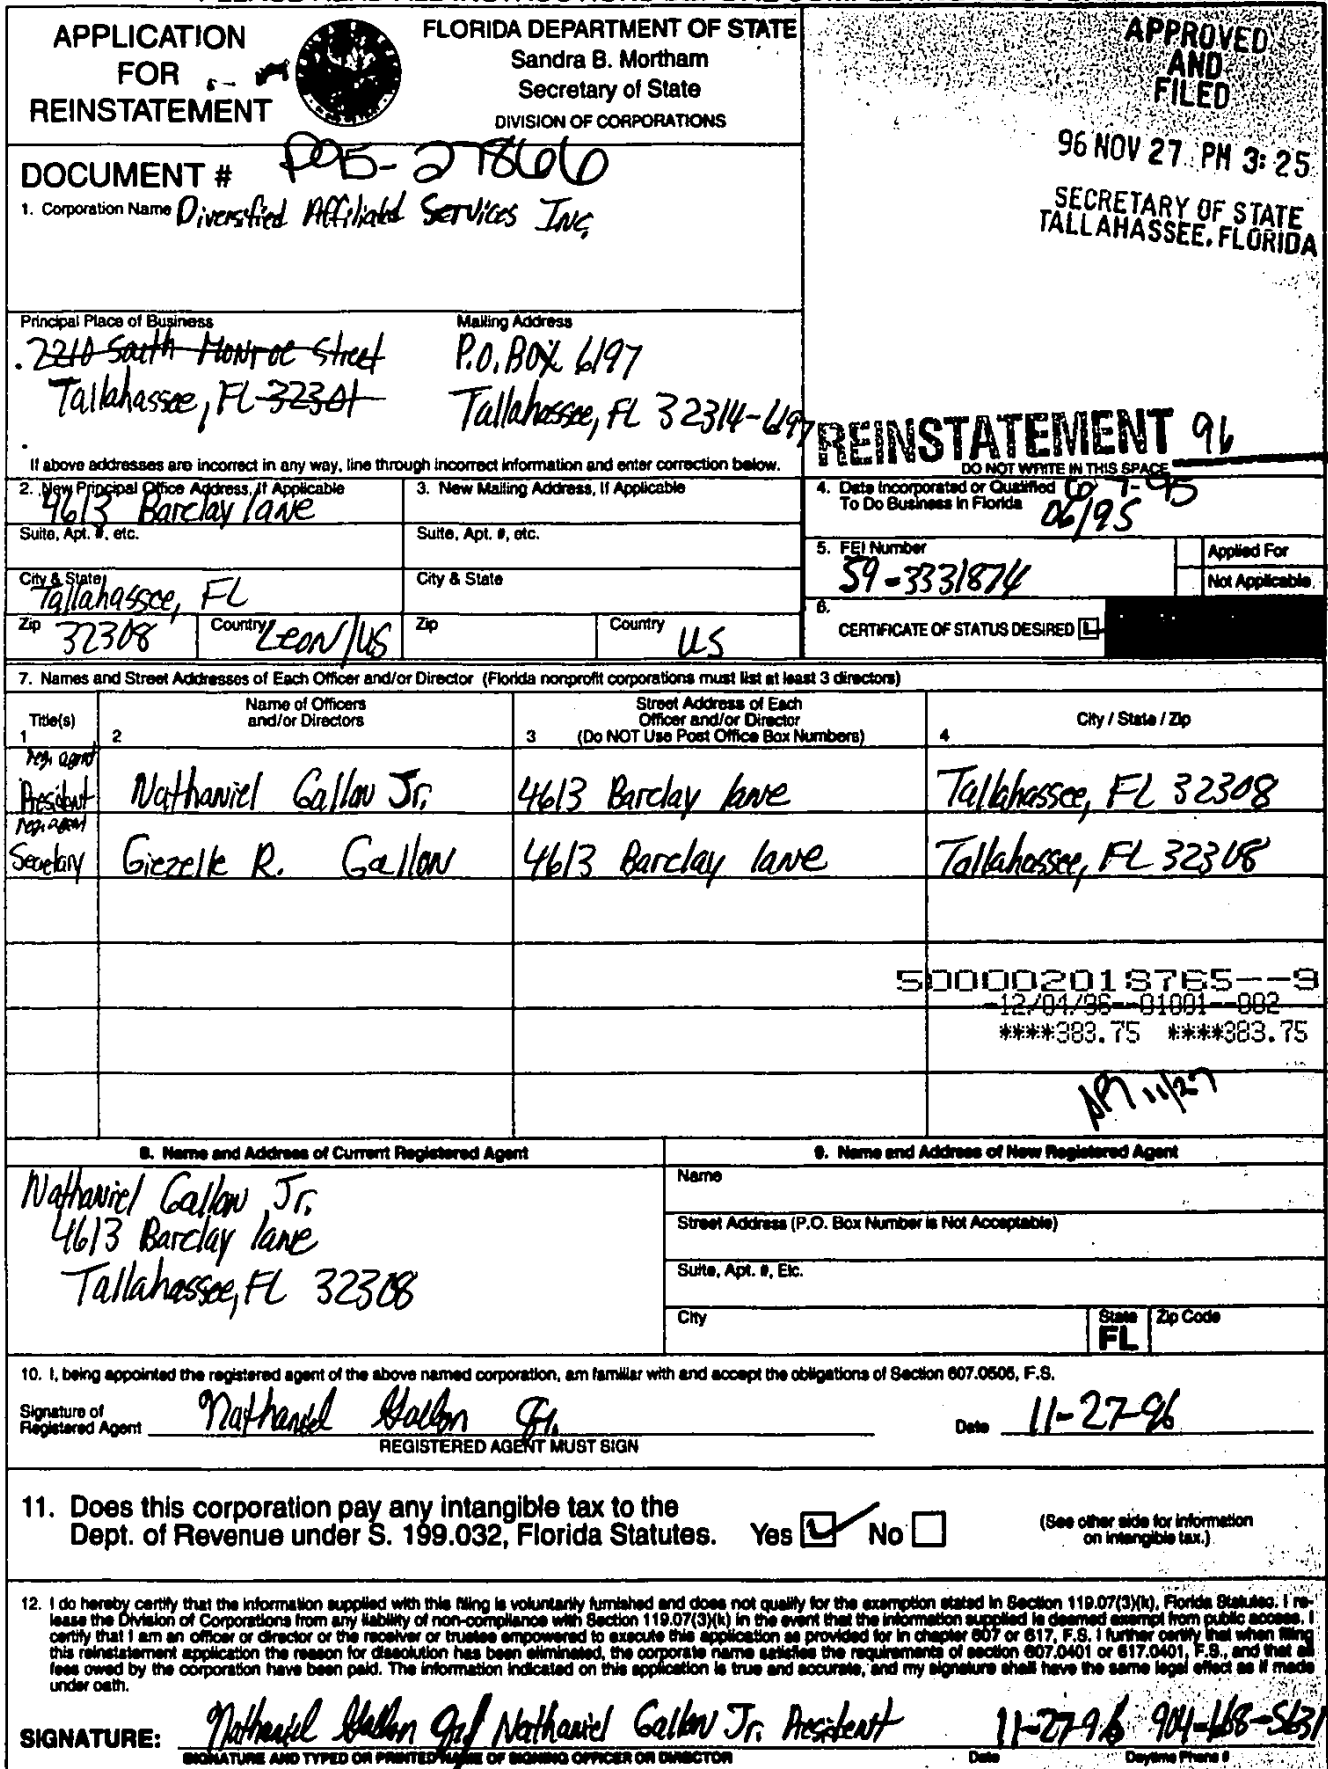 APPLICATION
FOR
REINSTATEMENT
FLORIDA DEPARTMENT OF STATE
Sandra B. Mortham
Secretary of State
DIVISION OF CORPORATIONS
APPROVED
AND
FILED
96 NOV 27 PM 3:25
SECRETARY OF STATE
TALLAHASSEE, FLORIDA
DOCUMENT # P95-27866
1. Corporation Name Diversified Affiliated Services Inc.
Principal Place of Business
2210 South Monroe Street
Tallahassee, FL 32301
Mailing Address
P.O. Box 6197
Tallahassee, FL 32314-6197
REINSTATEMENT 96
DO NOT WRITE IN THIS SPACE
If above addresses are incorrect in any way, line through incorrect information and enter correction below.
2. New Principal Office Address, If Applicable
4613 Barclay lane
Suite, Apt. #, etc.
City & State
Tallahassee, FL
Zip 32308
Country Leon/US
3. New Mailing Address, If Applicable
Suite, Apt. #, etc.
City & State
Zip
Country US
4. Date Incorporated or Qualified
To Do Business in Florida 06/95
5. FEI Number
59-3331874
Applied For
Not Applicable
6.
CERTIFICATE OF STATUS DESIRED
7. Names and Street Addresses of Each Officer and/or Director (Florida nonprofit corporations must list at least 3 directors)
Title(s)
1
Name of Officers
and/or Directors
2
Street Address of Each
Officer and/or Director
3 (Do NOT Use Post Office Box Numbers)
City / State / Zip
4
reg. agent
President Nathaniel Gallon Jr. 4613 Barclay lane Tallahassee, FL 32308
reg. agent
Secretary Giezelle R. Gallon 4613 Barclay lane Tallahassee, FL 32308
500002018765--9
-12/04/96--01001--002
****383.75 ****383.75
11/27
8. Name and Address of Current Registered Agent
Nathaniel Gallon Jr.
4613 Barclay lane
Tallahassee, FL 32308
9. Name and Address of New Registered Agent
Name
Street Address (P.O. Box Number is Not Acceptable)
Suite, Apt. #, Etc.
City
State
FL
Zip Code
10. I, being appointed the registered agent of the above named corporation, am familiar with and accept the obligations of Section 607.0505, F.S.
Signature of
Registered Agent Nathaniel Gallon Jr.
REGISTERED AGENT MUST SIGN
Date 11-27-96
11. Does this corporation pay any intangible tax to the
Dept. of Revenue under S. 199.032, Florida Statutes. Yes No
(See other side for information
on intangible tax.)
12. I do hereby certify that the information supplied with this filing is voluntarily furnished and does not qualify for the exemption stated in Section 119.07(3)(k), Florida Statutes. I re-
lease the Division of Corporations from any liability of non-compliance with Section 119.07(3)(k) in the event that the information supplied is deemed exempt from public access. I
certify that I am an officer or director or the receiver or trustee empowered to execute this application as provided for in chapter 607 or 617, F.S. I further certify that when filing
this reinstatement application the reason for dissolution has been eliminated, the corporate name satisfies the requirements of section 607.0401 or 617.0401, F.S., and that all
fees owed by the corporation have been paid. The information indicated on this application is true and accurate, and my signature shall have the same legal effect as if made
under oath.
SIGNATURE: Nathaniel Gallon Jr. / Nathaniel Gallon Jr. President 11-27-96 904-668-5631
SIGNATURE AND TYPED OR PRINTED NAME OF SIGNING OFFICER OR DIRECTOR
Date
Daytime Phone #